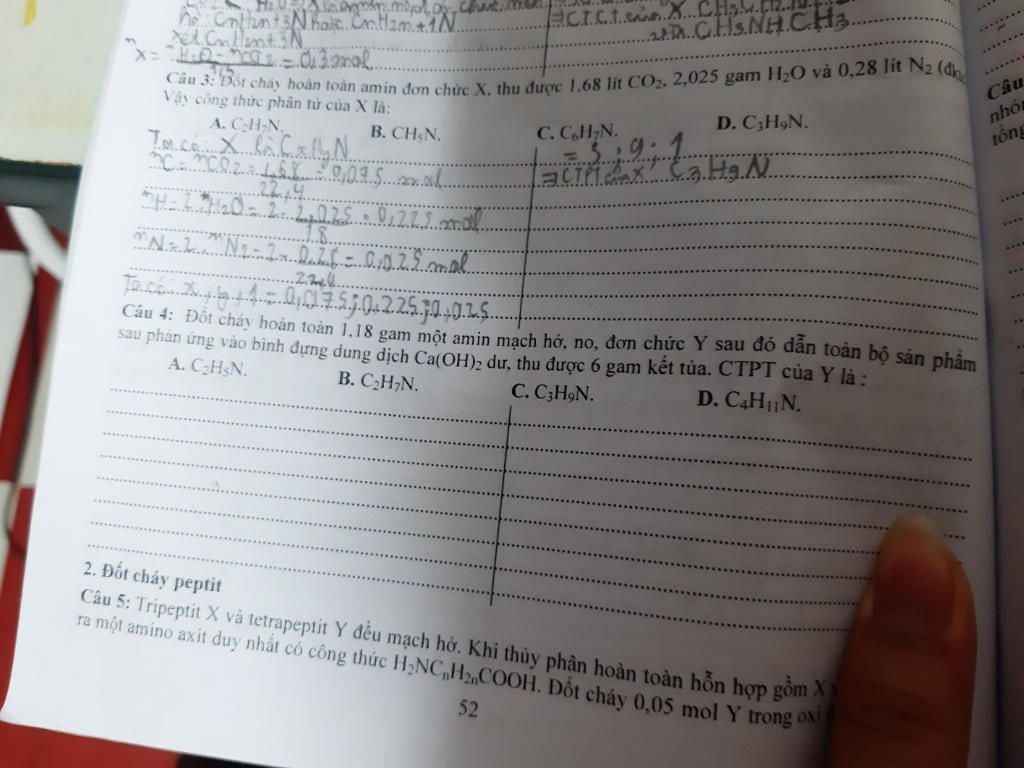 nó: CnH2n+3N hoặc CnH2m+1N
CH5NHCH3
xét CnH2n+3N
nX = nH2O - nCO2 = 0,3 mol
1,5
Câu 3: Đốt cháy hoàn toàn amin đơn chức X, thu được 1,68 lít CO2, 2,025 gam H2O và 0,28 lít N2
Vậy công thức phân tử của X là:
A. C2H7N. B. CH5N. C. C6H7N. D. C3H9N.
Ta có: X là CxHyN
= 3 : 9 : 1
nC = nCO2 = 1,68 = 0,075 mol
22,4
⇒ CTPT của X C3H9N
nH = 2.nH2O = 2. 2,025 = 0,225 mol
18
nN = 2. nN2 = 2. 0,28 = 0,025 mol
22,4
Ta có: x : y : 1 = 0,075 : 0,225 : 0,025
Câu 4: Đốt cháy hoàn toàn 1,18 gam một amin mạch hở, no, đơn chức Y sau đó dẫn toàn bộ sản phẩm
sau phản ứng vào bình đựng dung dịch Ca(OH)2 dư, thu được 6 gam kết tủa. CTPT của Y là :
A. C2H5N. B. C2H7N. C. C3H9N. D. C4H11N.
2. Đốt cháy peptit
Câu 5: Tripeptit X và tetrapeptit Y đều mạch hở. Khi thủy phân hoàn toàn hỗn hợp gồm X
ra một amino axit duy nhất có công thức H2NCnH2nCOOH. Đốt cháy 0,05 mol Y trong oxi
52
Câu
nhó
tổng